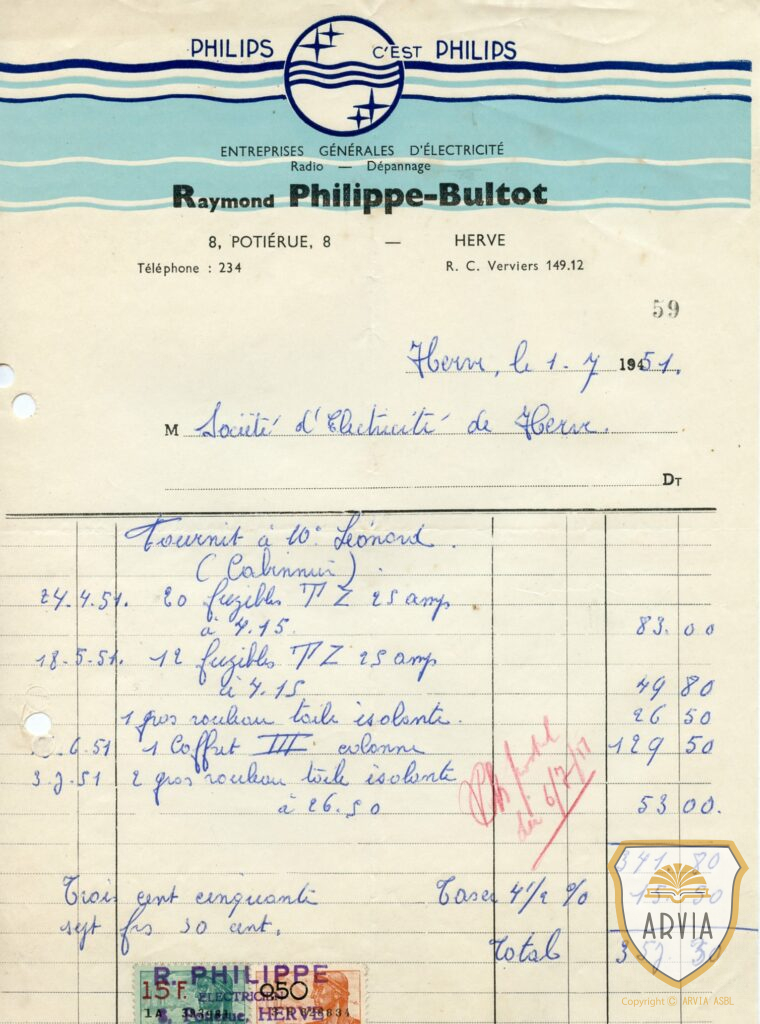 PHILIPS C'EST PHILIPS
ENTREPRISES GÉNÉRALES D'ÉLECTRICITÉ
Radio — Dépannage
Raymond Philippe-Bultot
8, POTIÉRUE, 8 — HERVE
Téléphone : 234 R. C. Verviers 149.12
59
Herve, le 1. 7 1951.
M Société d'Electricité de Herve.
DT
Fournit à Mr Léonard.
(Cabinnier).
24.4.51. 20 fuzibles T Z 25 amp
à 4.15. 83.00
18.5.51. 12 fuzibles T Z 25 amp
à 4.15 49 80
1 gros rouleau toile isolante. 26 50
.6.51 1 Coffret III colonne 129 50
3.7.51 2 gros rouleau toile isolante
à 26.50 53 00.
du 6/7/51
341 80
Trois cent cinquante Taxe 4 1/2 % 15.50
sept frs 30 cent.
Total 357 30
R. PHILIPPE
15 F. 050
ELECTRICIEN
8, Potiérue, HERVE
ARVIA
Copyright © ARVIA ASBL